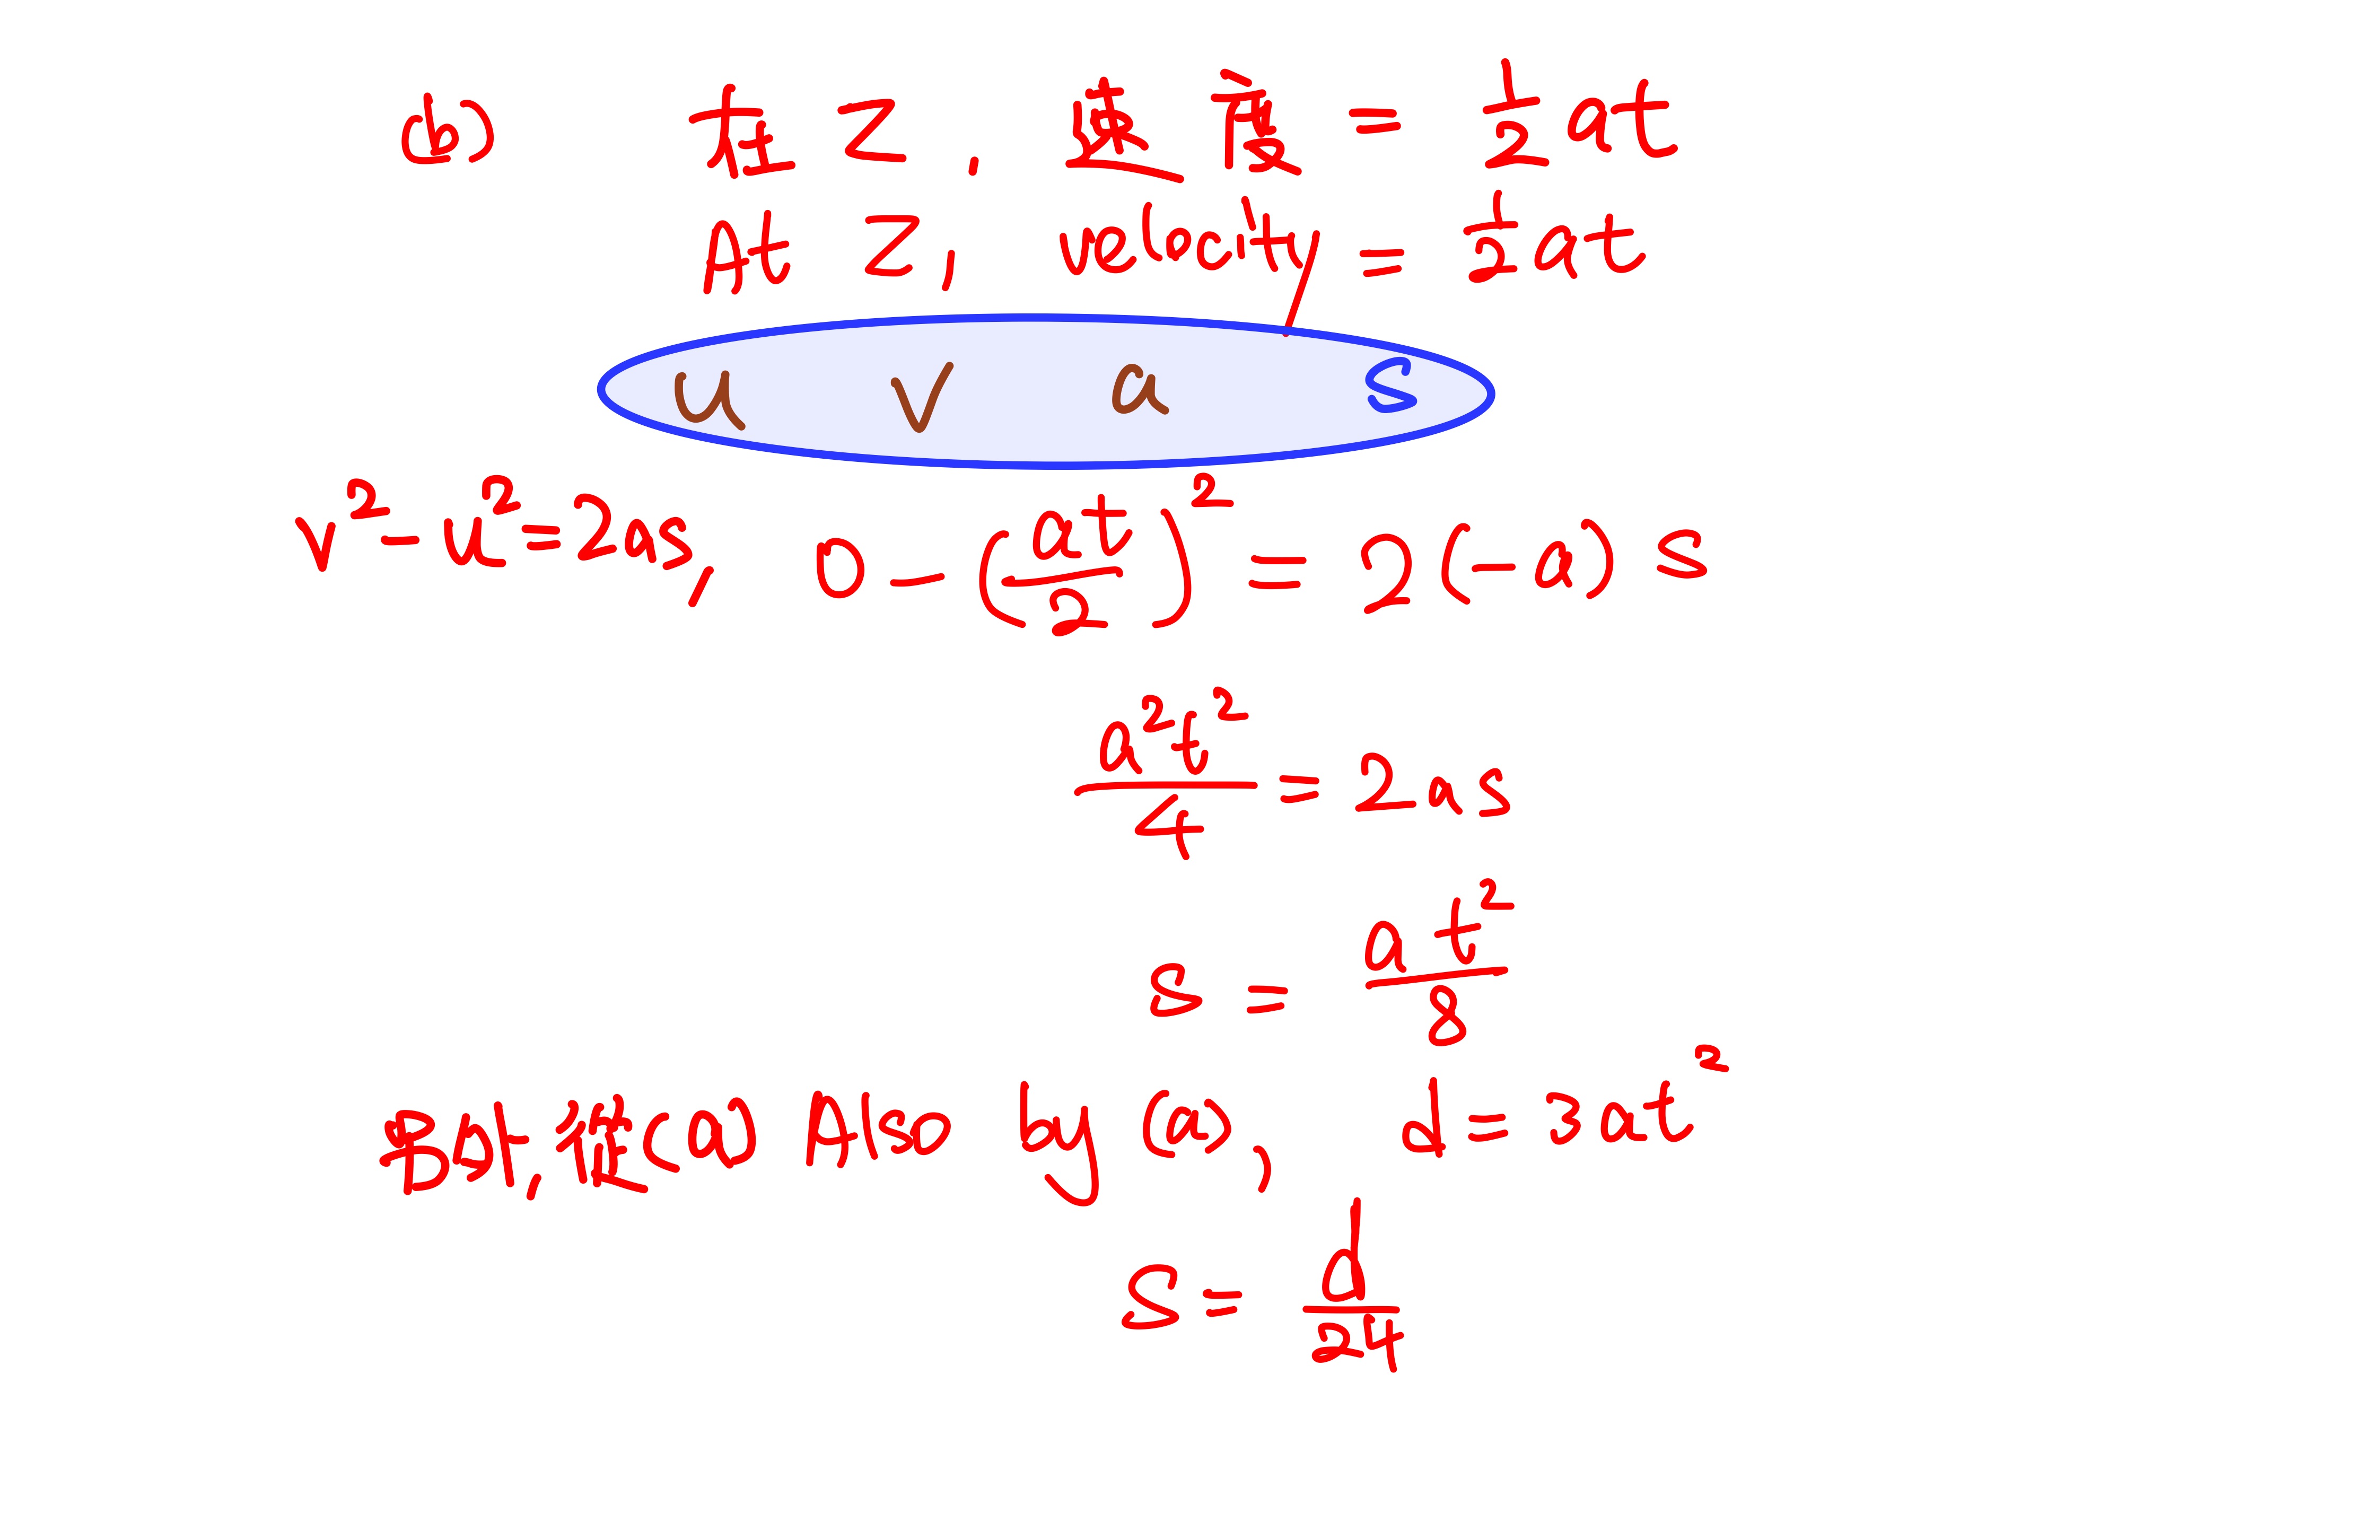 (b) 在 Z, 速度 = 1/2 at
At Z, velocity = 1/2 at
u v a s
v² - u² = 2as, 0 - (at/2)² = 2(-a) s
a²t²/4 = 2as
s = at²/8
另外, 從(a) Also by (a), d = 3at²
s = d/24